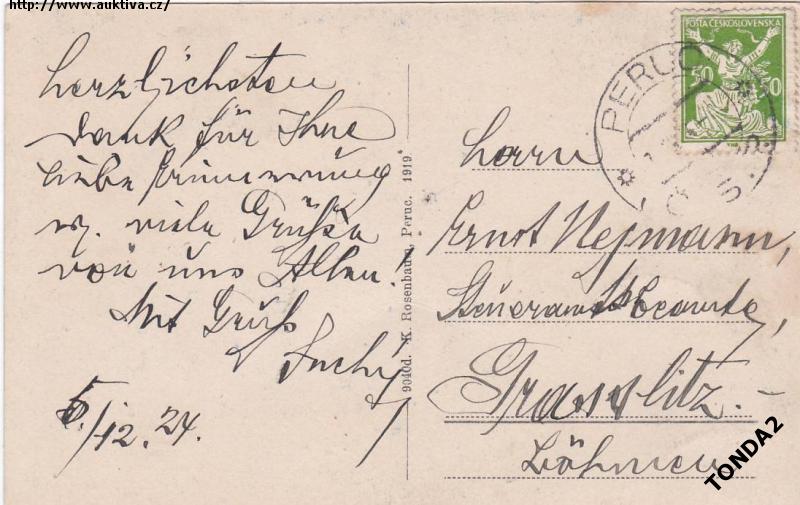 http://www.auktiva.cz/
herzlichsten
dank für Ihre
liebe Erinnerung
u. viele Grüße
von uns Allen!
Mit Gruß
Suchý
5./12. 24.
9040d. K. Rosenbaum, Peruc. 1919
POŠTA ČESKOSLOVENSKA
50
PERUC
Herrn
Ernst Nejmann,
Steueramts
Graslitz.
Böhmen
TONDA2